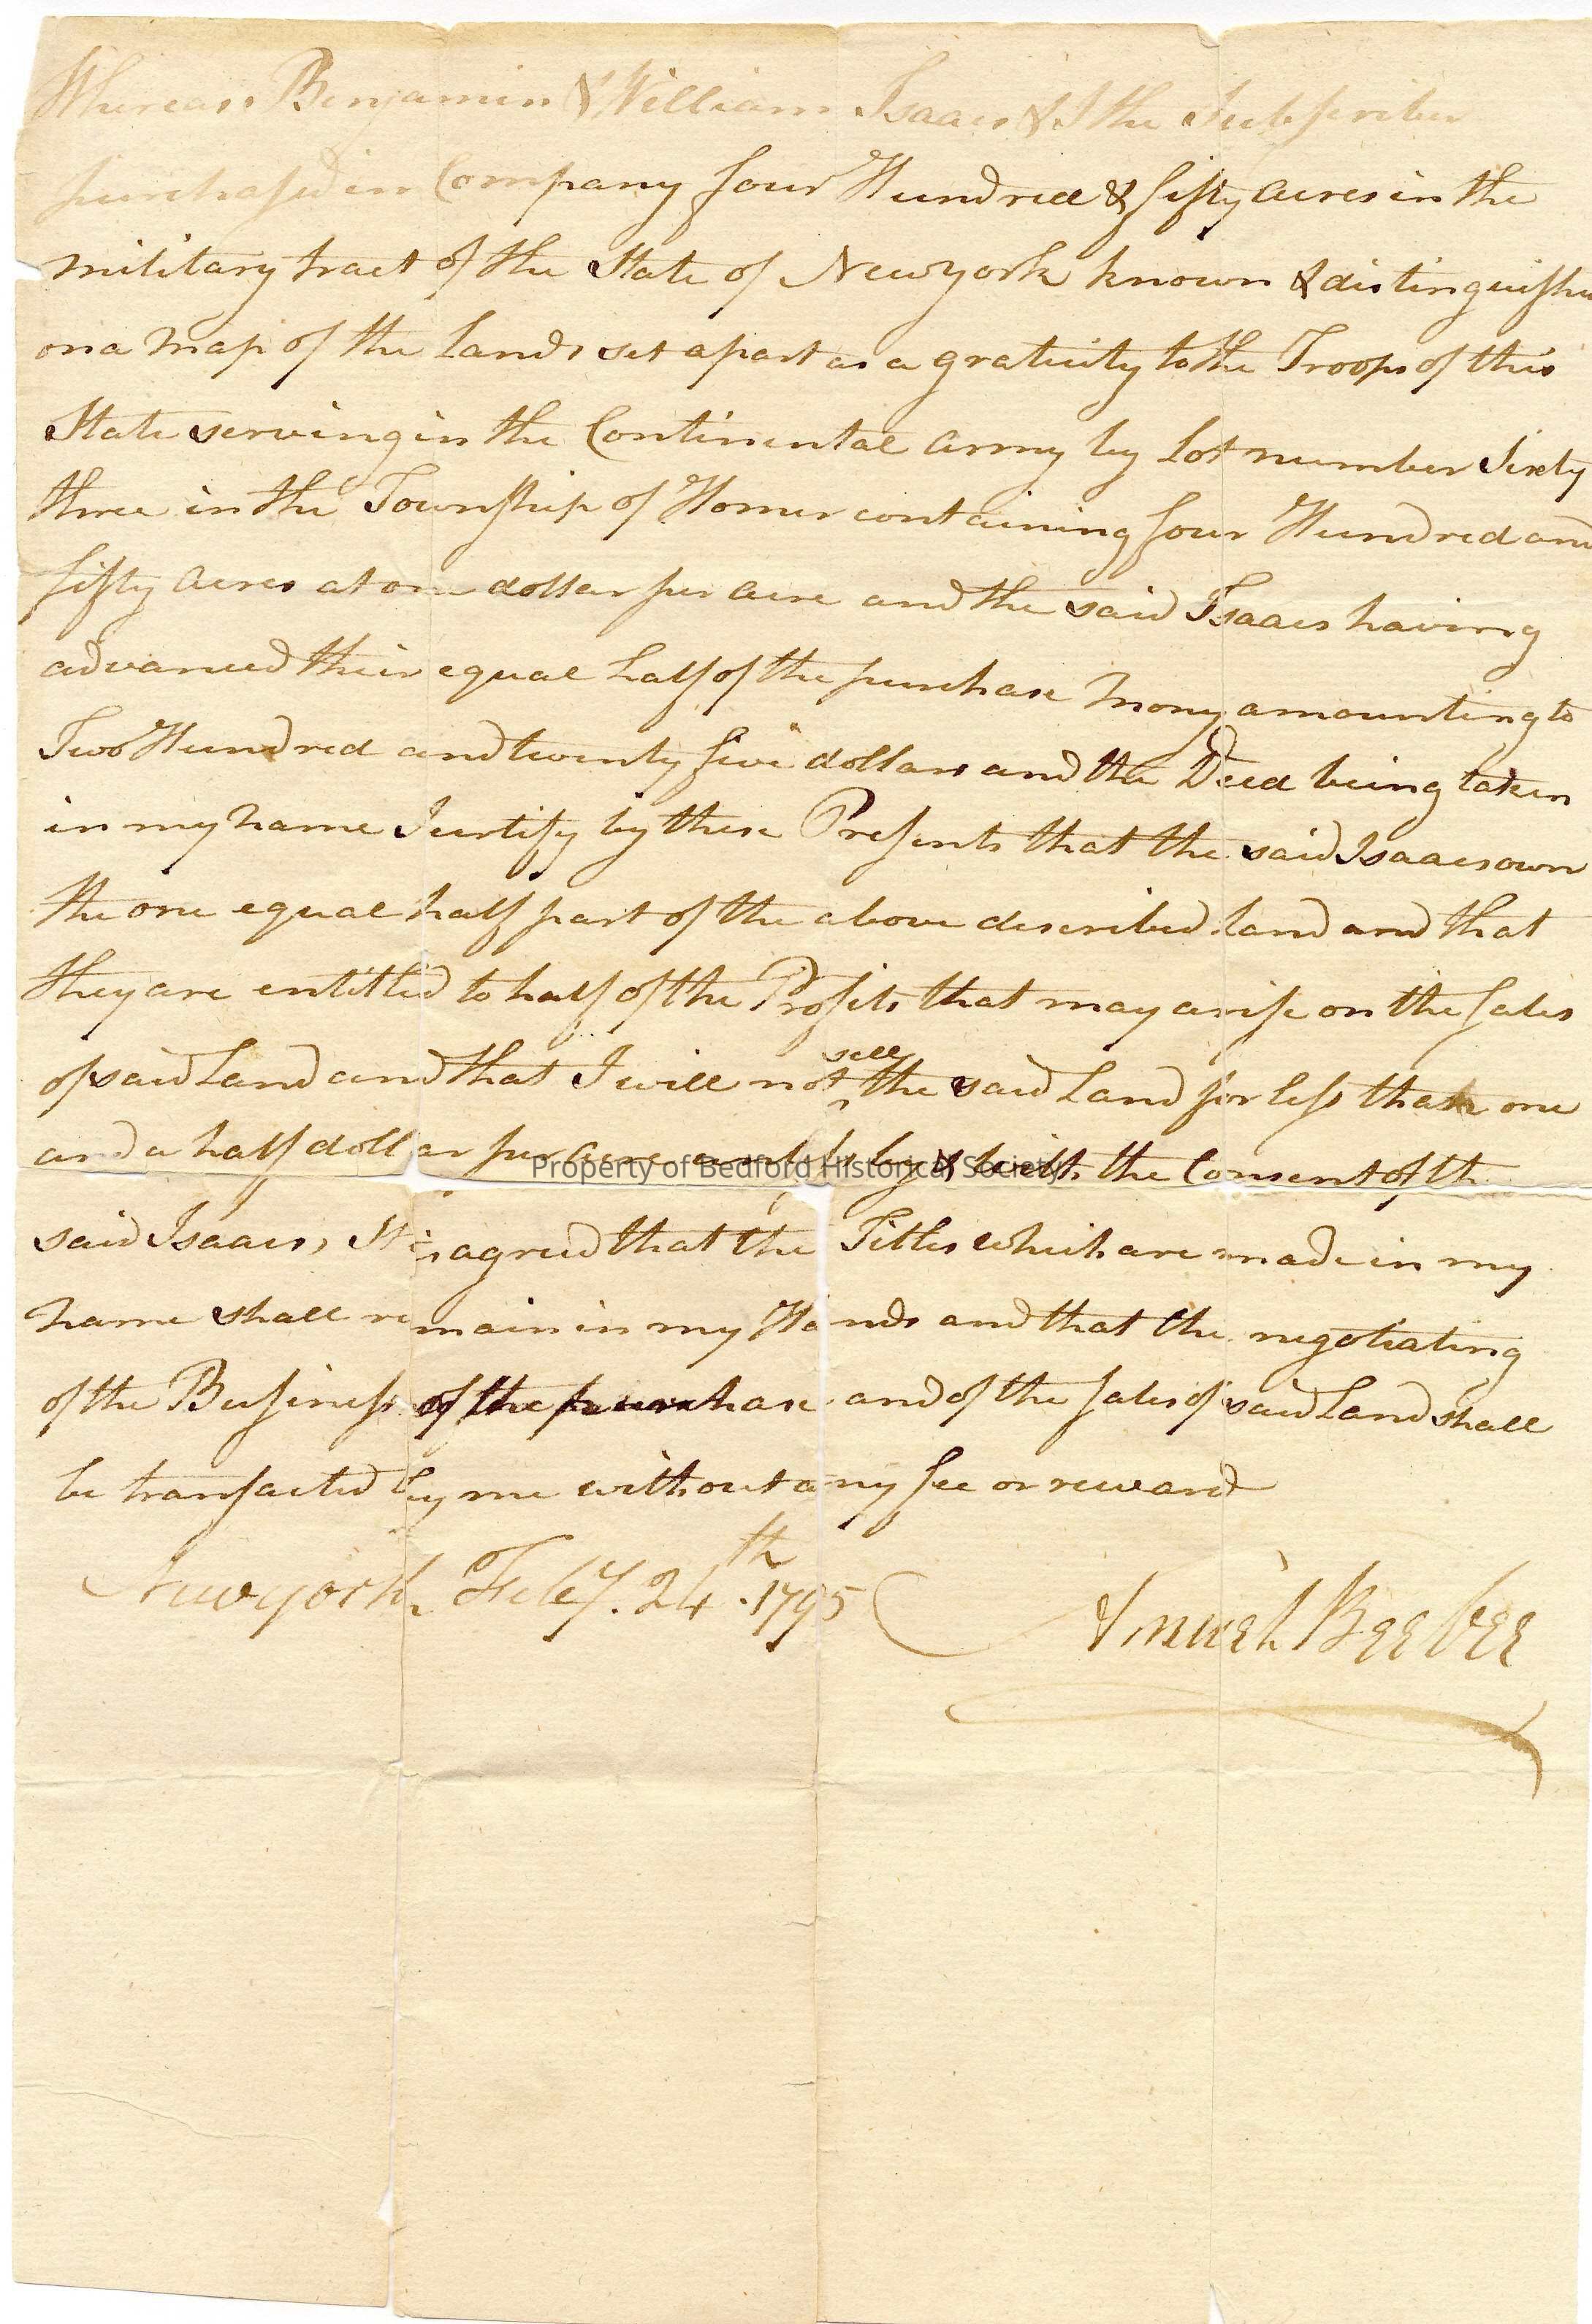 Whereas Benjamin & William Isaacs & I the Subscriber
purchased in Company four Hundred & fifty acres in the
military tract of the State of Newyork known & distinguished
on a map of the lands set apart as a gratuity to the Troops of this
State serving in the Continental army by Lot number Sixty
three in the Township of Homer containing four Hundred and
fifty acres at one dollar per acre and the said Isaacs having
advanced their equal half of the purchase Mony amounting to
Two Hundred and twenty five dollars and the Deed being taken
in my name I certify by these Presents that the said Isaacs own
the one equal half part of the above described land and that
they are entitled to half of the Profits that may arise on the sales
of said Land and that I will not sell the said Land for less than one
and a half dollar per acre by & with the Consent of the
Property of Bedford Historical Society
said Isaacs, It is agreed that the Titles which are made in my
name shall remain in my Hands and that the negotiating
of the Business of the purchase and of the sales of said Land shall
be transacted by me without any fee or reward
Newyork Feby. 24th. 1795
Samuel Beebee